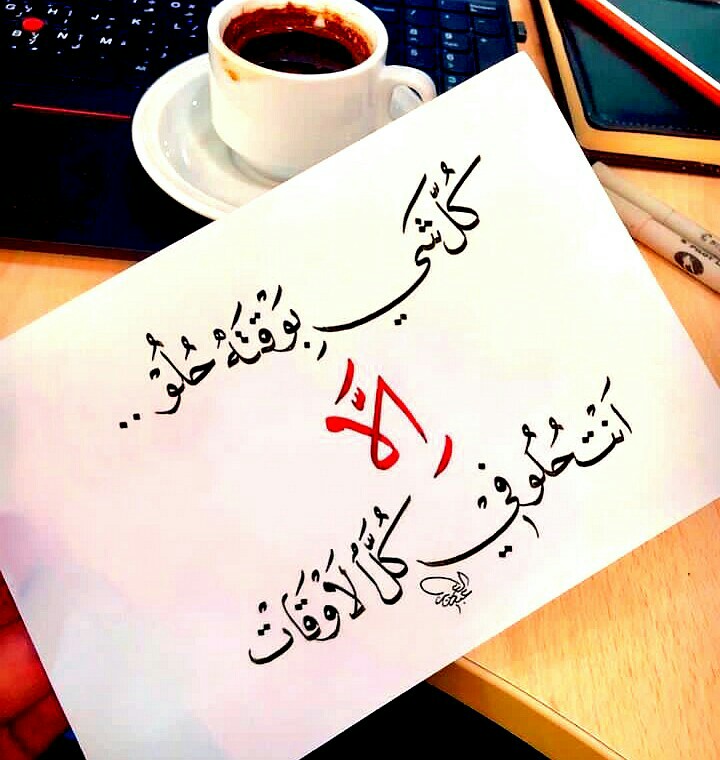 كُلّ شَي بِوَقْتَهُ حُلُوْ ..
اِلَّا
اَنْتَ حُلُو فِيْ كُلَّ لأَوْقَاتْ